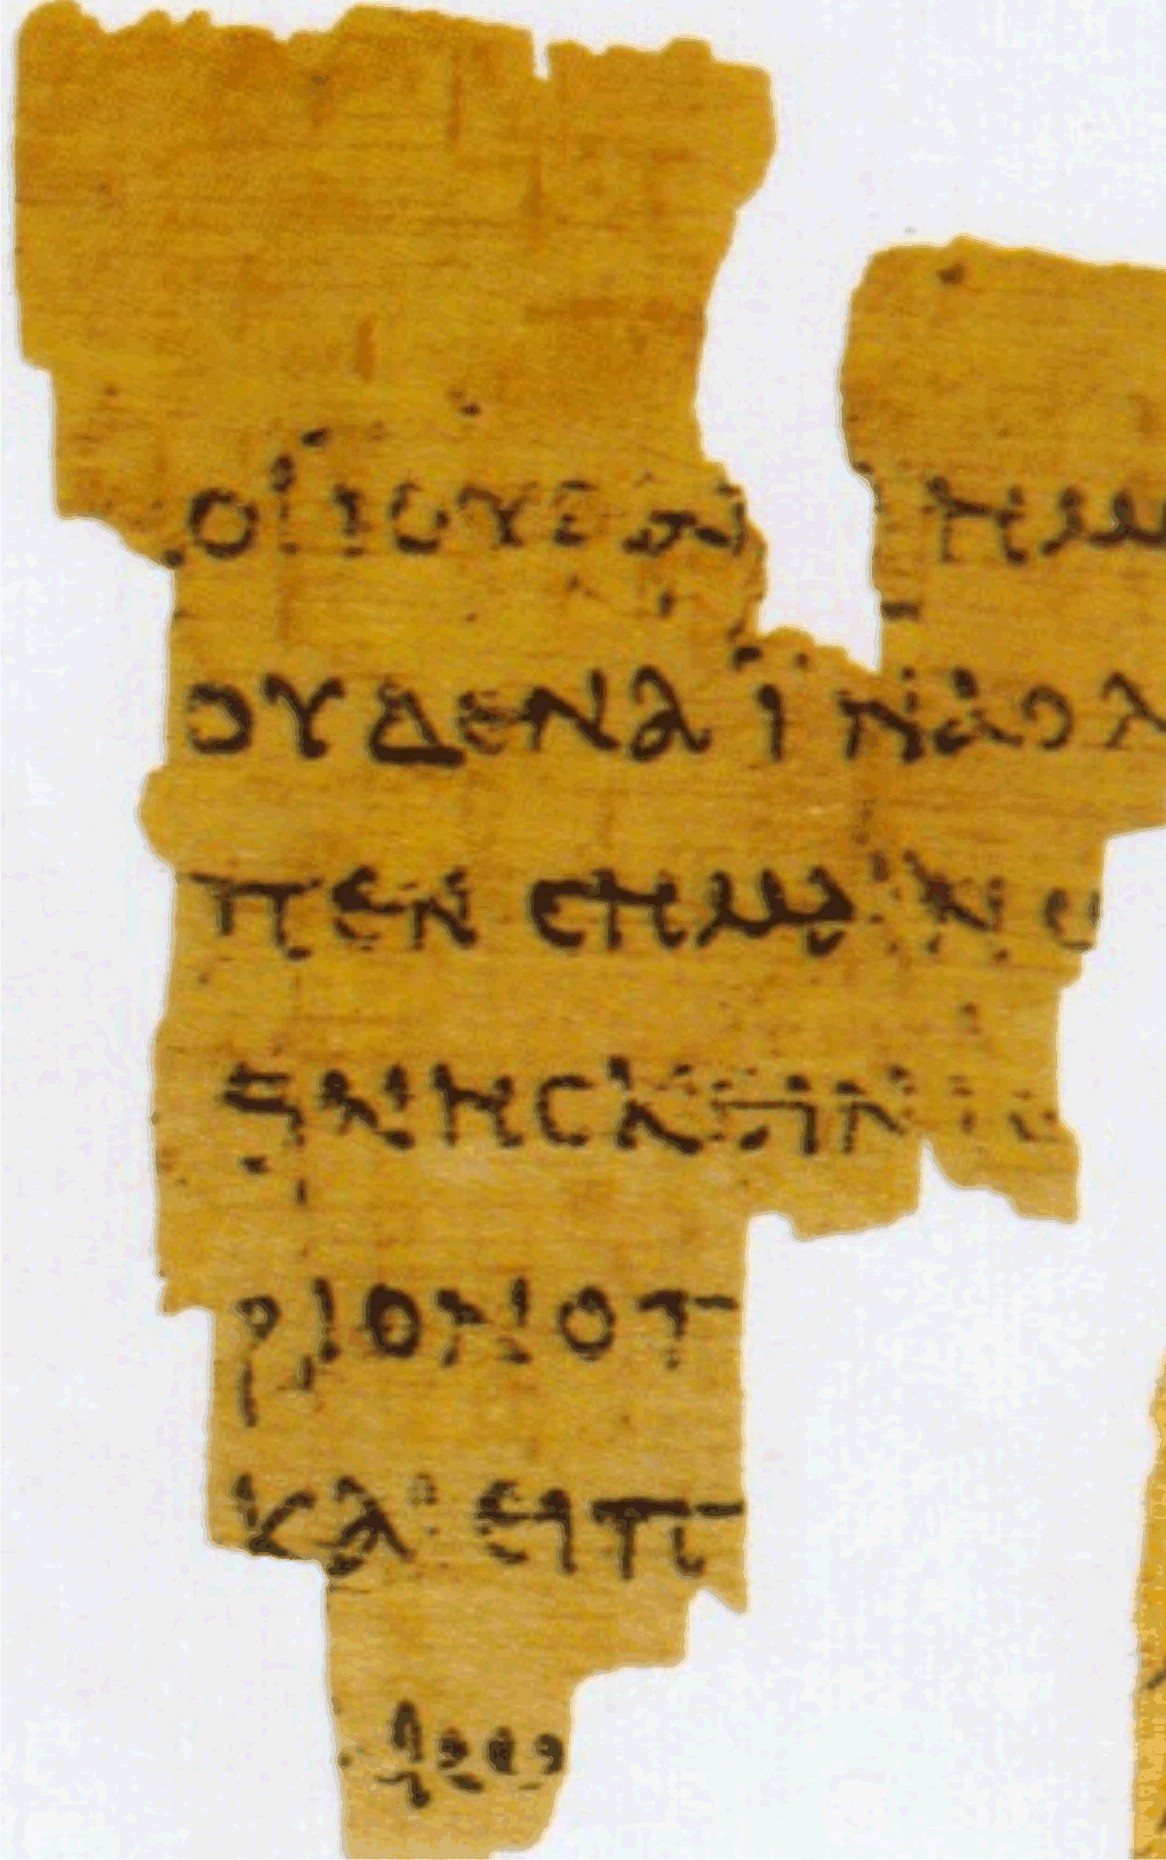 ΟΙ ΙΟΥΔΑΙ ΗΜ
ΟΥΔΕΝΑ ΙΝΑ Ο Λ
ΠΕΝ ΣΗΜΑΙΝΩ
ΘΝΗΣΚΕΙΝ ΙΣ
ΡΙΟΝ Ο Π
ΚΑΙ ΕΙΠ